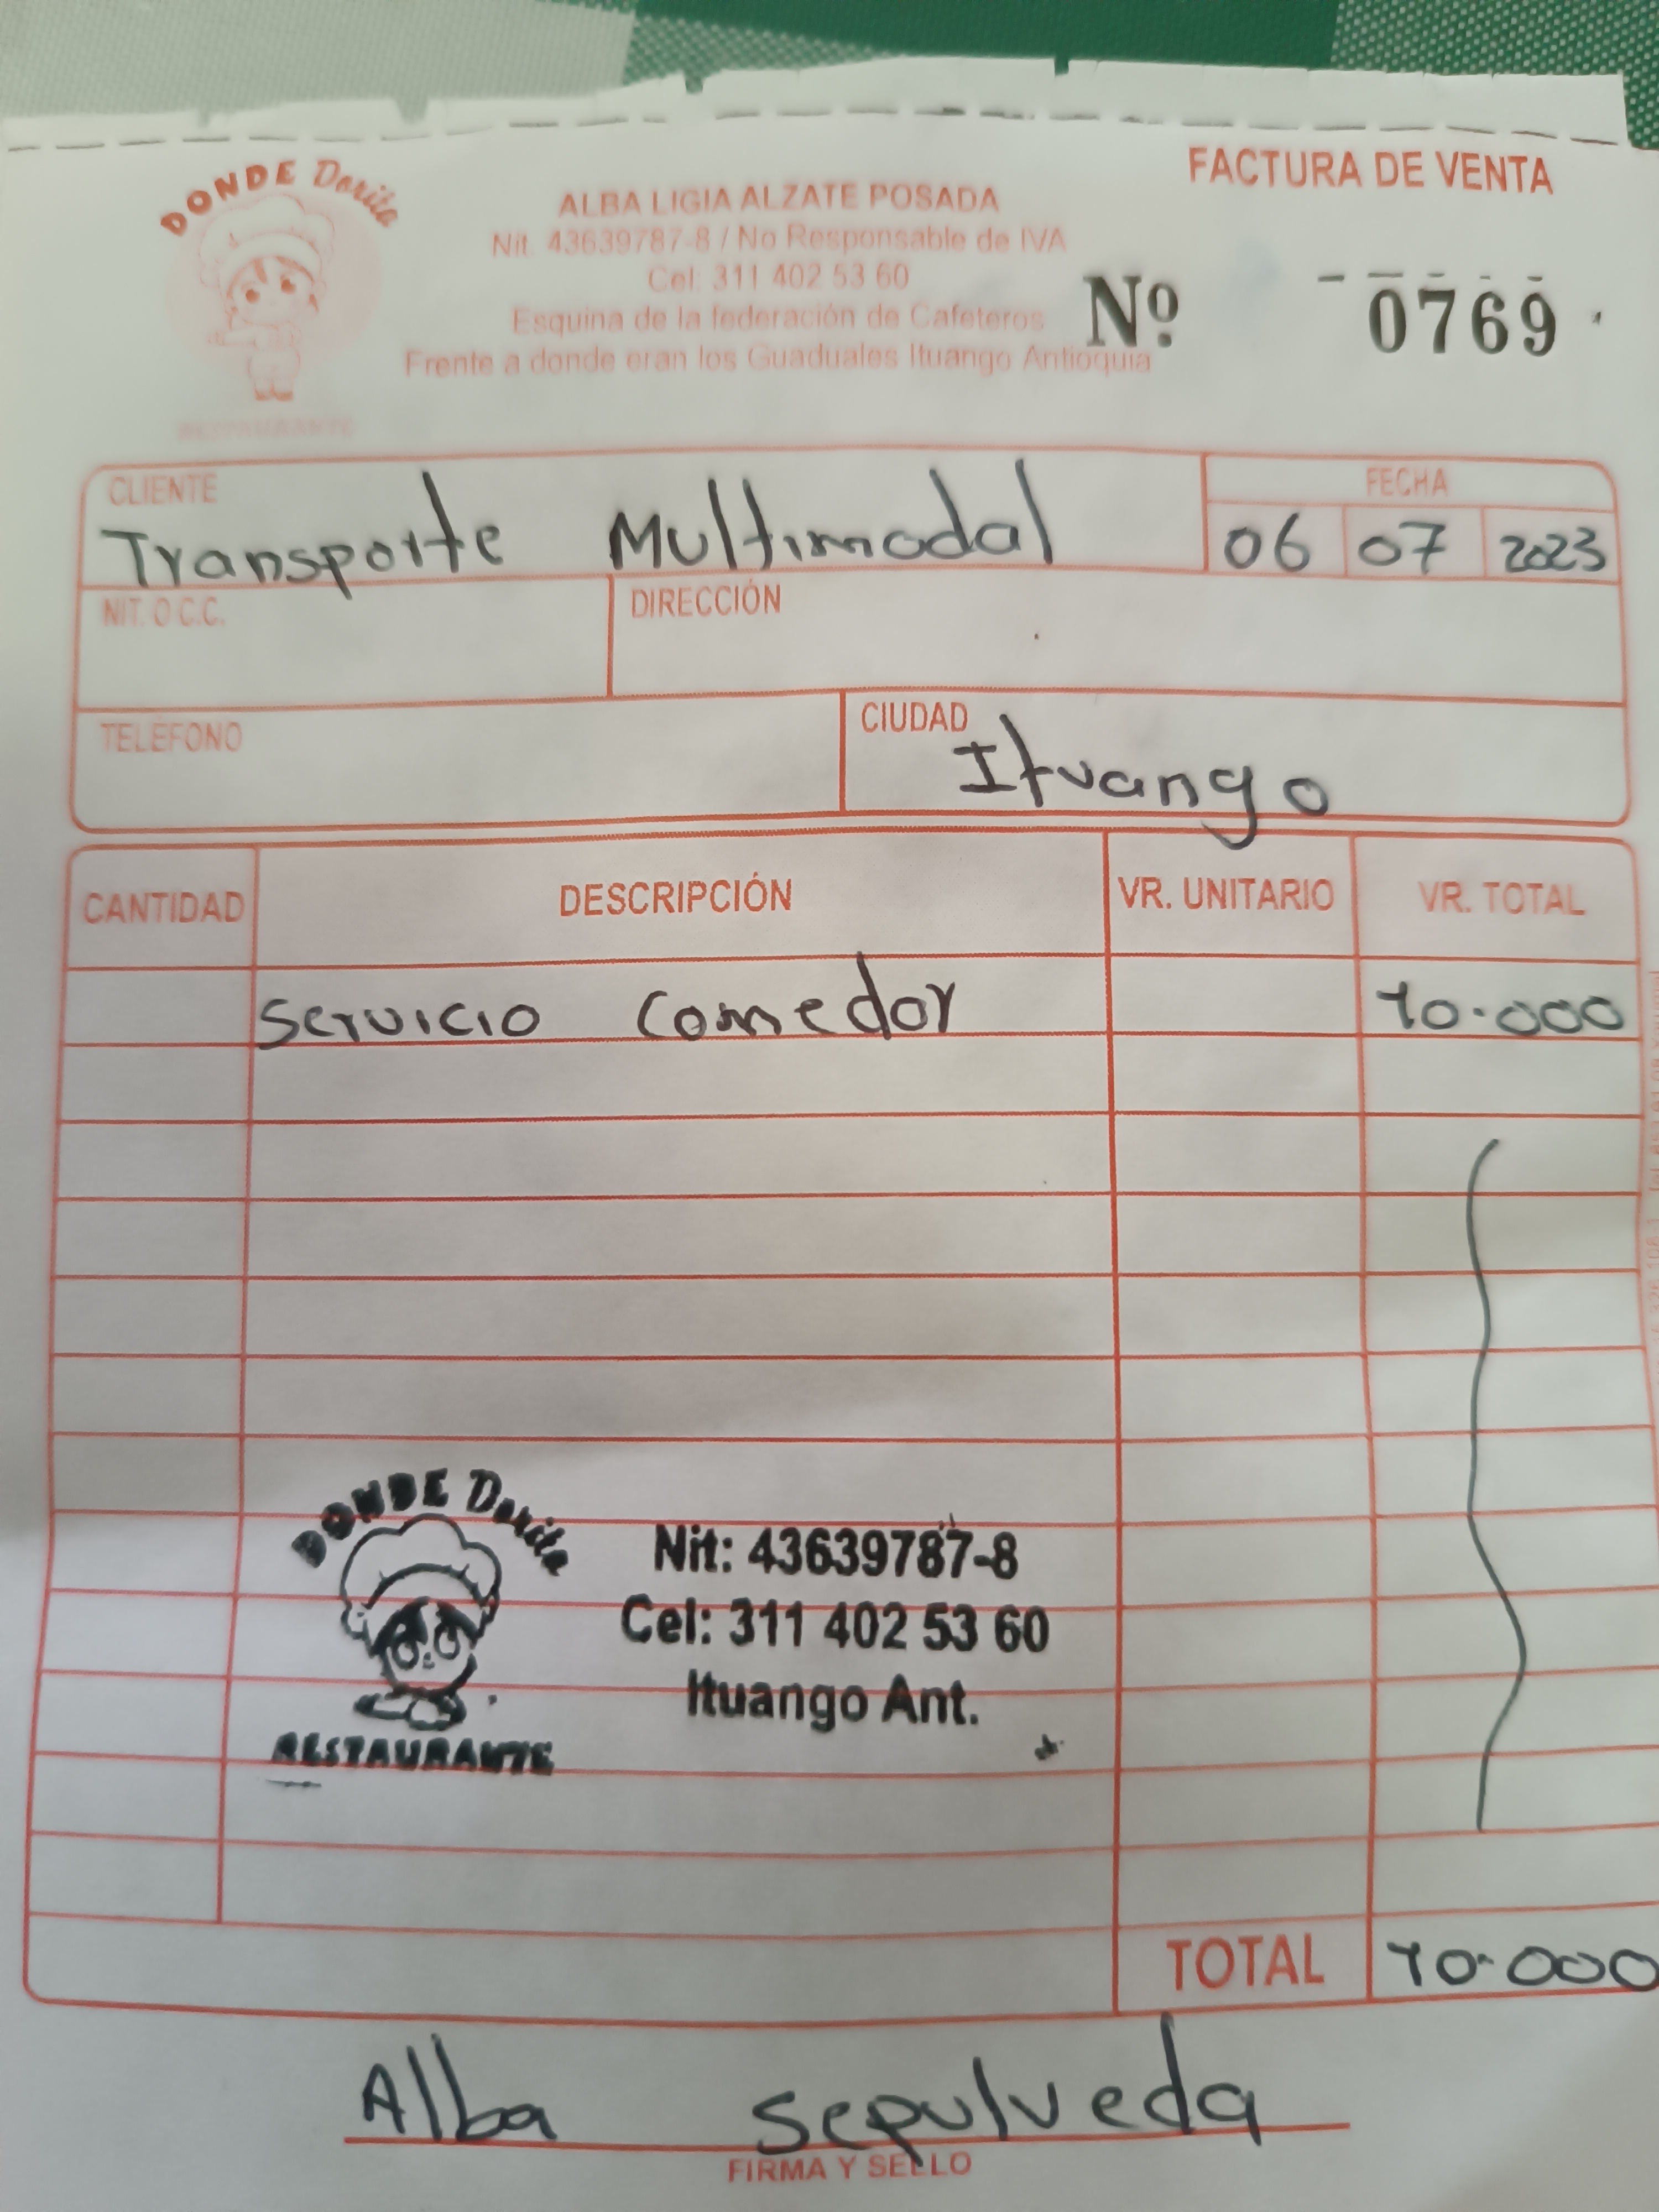 DONDE Dorita
RESTAURANTE
ALBA LIGIA ALZATE POSADA
Nit. 43639787-8 / No Responsable de IVA
Cel: 311 402 53 60
Esquina de la federación de Cafeteros
Frente a donde eran los Guaduales Ituango Antioquia
FACTURA DE VENTA
Nº 0769
CLIENTE
Transporte Multimodal
FECHA
06 07 2023
NIT. O C.C.
DIRECCIÓN
TELÉFONO
CIUDAD
Ituango
CANTIDAD DESCRIPCIÓN VR. UNITARIO VR. TOTAL
Servicio Comedor 70.000
DONDE Dorita
RESTAURANTE
Nit: 43639787-8
Cel: 311 402 53 60
Ituango Ant.
TOTAL 70.000
Alba Sepulveda
FIRMA Y SELLO